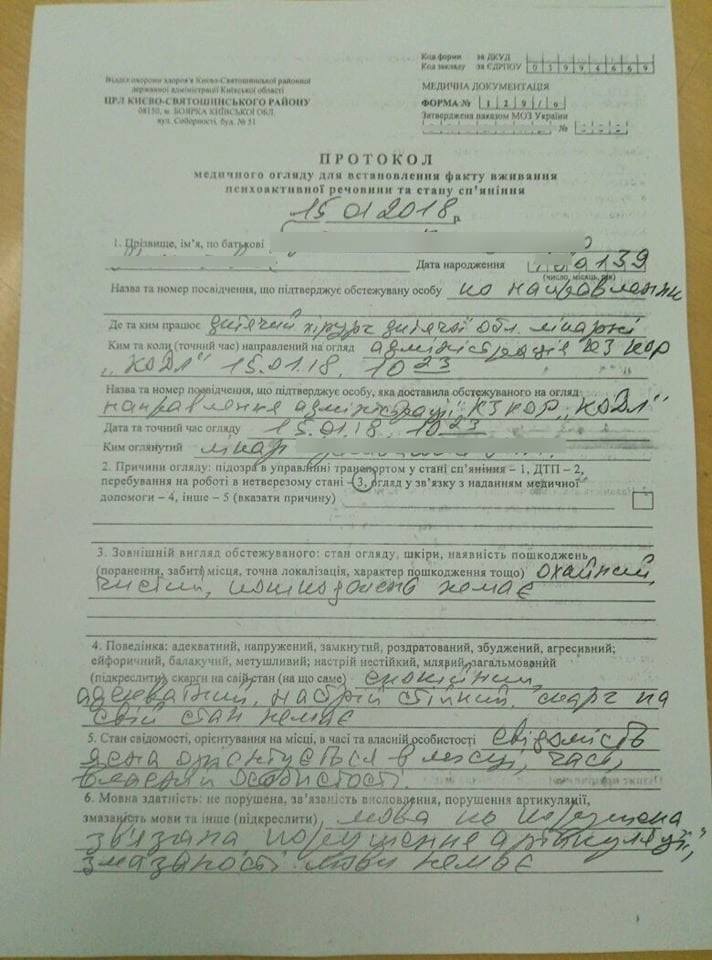 Код форми за ДКУД
Код закладу за ЄДРПОУ 03994669
Відділ охорони здоров'я Києво-Святошинської районної
державної адміністрації Київської області
ЦРЛ КИЄВО-СВЯТОШИНСЬКОГО РАЙОНУ
08150, м. БОЯРКА КИЇВСЬКОЇ ОБЛ.
вул. Соборності, буд. № 51
МЕДИЧНА ДОКУМЕНТАЦІЯ
ФОРМА № 129/о
Затверджена наказом МОЗ України
№
ПРОТОКОЛ
медичного огляду для встановлення факту вживання
психоактивної речовини та стану сп'яніння
15 01 2018 р.
1. Прізвище, ім'я, по батькові
Дата народження 139
(число, місяць, рік)
Назва та номер посвідчення, що підтверджує обстежувану особу по направленню
Де та ким працює дитячий хірург дитячої обл. лікарні
Ким та коли (точний час) направлений на огляд адміністрація КЗ КОР
"КОДЛ" 15.01.18. 10 23
Назва та номер посвідчення, що підтверджує особу, яка доставила обстежуваного на огляд
направлення адміністрації КЗ КОР "КОДЛ"
Дата та точний час огляду 15.01.18. 10 23
Ким оглянутий лікар
2. Причини огляду: підозра в управлінні транспортом у стані сп'яніння – 1, ДТП – 2,
перебування на роботі в нетверезому стані – 3, огляд у зв'язку з наданням медичної
допомоги – 4, інше – 5 (вказати причину)
3. Зовнішній вигляд обстежуваного: стан огляду, шкіри, наявність пошкоджень
(поранення, забиті місця, точна локалізація, характер пошкодження тощо) охайний,
чистий, пошкоджень немає
4. Поведінка: адекватний, напружений, замкнутий, роздратований, збуджений, агресивний;
ейфоричний, балакучий, метушливий; настрій нестійкий, млявий, загальмований
(підкреслити), скарги на свій стан (на що саме) спокійний,
адекватний, настрій стійкий, скарг на
свій стан немає
5. Стан свідомості, орієнтування на місці, в часі та власній особистості свідомість
ясна орієнтується в місці, часі,
власній особистості.
6. Мовна здатність: не порушена, зв'язаність висловлення, порушення артикуляції,
змазаність мови та інше (підкреслити) мова не порушена
зв'язана порушення артикуляції,
змазаності мови немає